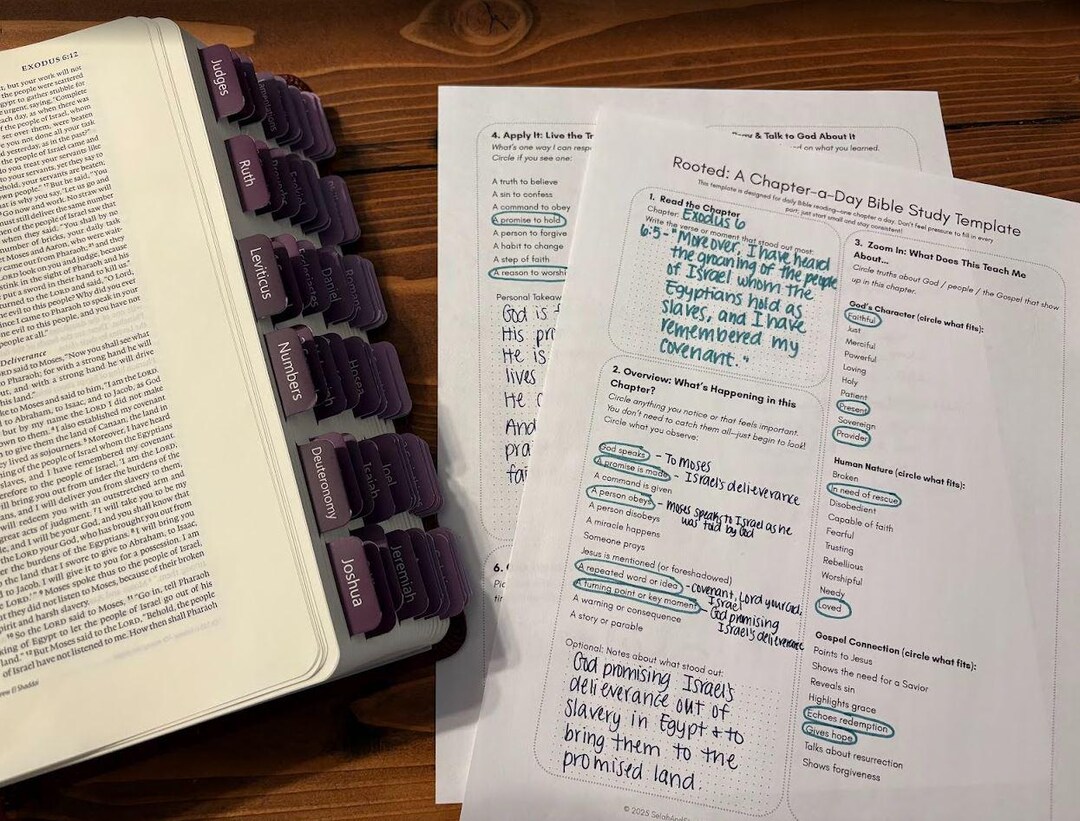 EXODUS 6:12
but your work will not
the people were scattered
gypt to gather stubble for
urgent, saying, "Complete
each day, as when there was
of the people of Israel, whom
set over them, were beaten
you not done all your task
yesterday, as in the past?"
the people of Israel came and
do you treat your servants like
to your servants, yet they say to
behold, your servants are beaten;
own people." 17 But he said, "You
that is why you say, 'Let us go and
Go now and work. No straw will
must still deliver the same number
en of the people of Israel saw that
when they said, "You shall by no
number of bricks, your daily task
t Moses and Aaron, who were wait-
came out from Pharaoh; 21 and they
LORD look on you and judge, because
stink in the sight of Pharaoh and his
put a sword in their hand to kill us."
turned to the LORD and said, "O Lord,
evil to this people? Why did you ever
since I came to Pharaoh to speak in your
ne evil to this people, and you have not
people at all."
Deliverance
LORD said to Moses, "Now you shall see what
to Pharaoh; for with a strong hand he will
out, and with a strong hand he will drive
his land."
ke to Moses and said to him, "I am the LORD.
to Abraham, to Isaac, and to Jacob, as God
but by my name the LORD I did not make
own to them. 4 I also established my covenant
to give them the land of Canaan, the land in
y lived as sojourners. 5 Moreover, I have heard
ning of the people of Israel whom the Egyptians
slaves, and I have remembered my covenant.
erefore to the people of Israel, 'I am the LORD,
bring you out from under the burdens of the
ns, and I will deliver you from slavery to them,
will redeem you with an outstretched arm and
great acts of judgment. 7 I will take you to be my
e, and I will be your God, and you shall know that
the LORD your God, who has brought you out from
er the burdens of the Egyptians. 8 I will bring you
o the land that I swore to give to Abraham, to Isaac,
d to Jacob. I will give it to you for a possession. I am
e LORD.'" 9 Moses spoke thus to the people of Israel,
they did not listen to Moses, because of their broken
pirit and harsh slavery.
10 So the LORD said to Moses, 11 "Go in, tell Pharaoh
king of Egypt to let the people of Israel go out of his
land." 12 But Moses said to the LORD, "Behold, the people
of Israel have not listened to me. How then shall Pharaoh
rew El Shaddai
Judges
Ruth
Leviticus
Daniel
Romans
Numbers
Hosea
Deuteronomy
Isaiah
Joel
Joshua
Jeremiah
4. Apply It: Live the Tr
What's one way I can resp
Circle if you see one:
A truth to believe
A sin to confess
A command to obey
A promise to hold
A person to forgive
A habit to change
A step of faith
A reason to worsh
Personal Takeaw
God is f
His pr
He is
lives
He c
And
pra
fai
6.
Pic
& Talk to God About it
on what you learned.
Rooted: A Chapter-a-Day Bible Study Template
This template is designed for daily Bible reading—one chapter a day. Don't feel pressure to fill in every
part; just start small and stay consistent!
1. Read the Chapter
Chapter: Exodus 6
Write the verse or moment that stood out most:
6:5 - "Moreover, I have heard
the groaning of the people
of Israel whom the
Egyptians hold as
slaves, and I have
remembered my
covenant."
2. Overview: What's Happening in this
Chapter?
Circle anything you notice or that feels important.
You don't need to catch them all—just begin to look!
Circle what you observe:
God speaks - To Moses
A promise is made - Israel's deliverance
A command is given
A person obeys - Moses speaks to Israel as he
was told by God
A person disobeys
A miracle happens
Someone prays
Jesus is mentioned (or foreshadowed)
A repeated word or idea - covenant, Lord your God,
Israel
A turning point or key moment - God promising
Israel's deliverance
A warning or consequence
A story or parable
Optional: Notes about what stood out:
God promising Israel's
deliverance out of
slavery in Egypt + to
bring them to the
promised land.
3. Zoom In: What Does This Teach Me
About...
Circle truths about God / people / the Gospel that show
up in this chapter.
God's Character (circle what fits):
Faithful
Just
Merciful
Powerful
Loving
Holy
Patient
Present
Sovereign
Provider
Human Nature (circle what fits):
Broken
In need of rescue
Disobedient
Capable of faith
Fearful
Trusting
Rebellious
Worshipful
Needy
Loved
Gospel Connection (circle what fits):
Points to Jesus
Shows the need for a Savior
Reveals sin
Highlights grace
Echoes redemption
Gives hope
Talks about resurrection
Shows forgiveness
© 2025 SelahAnd